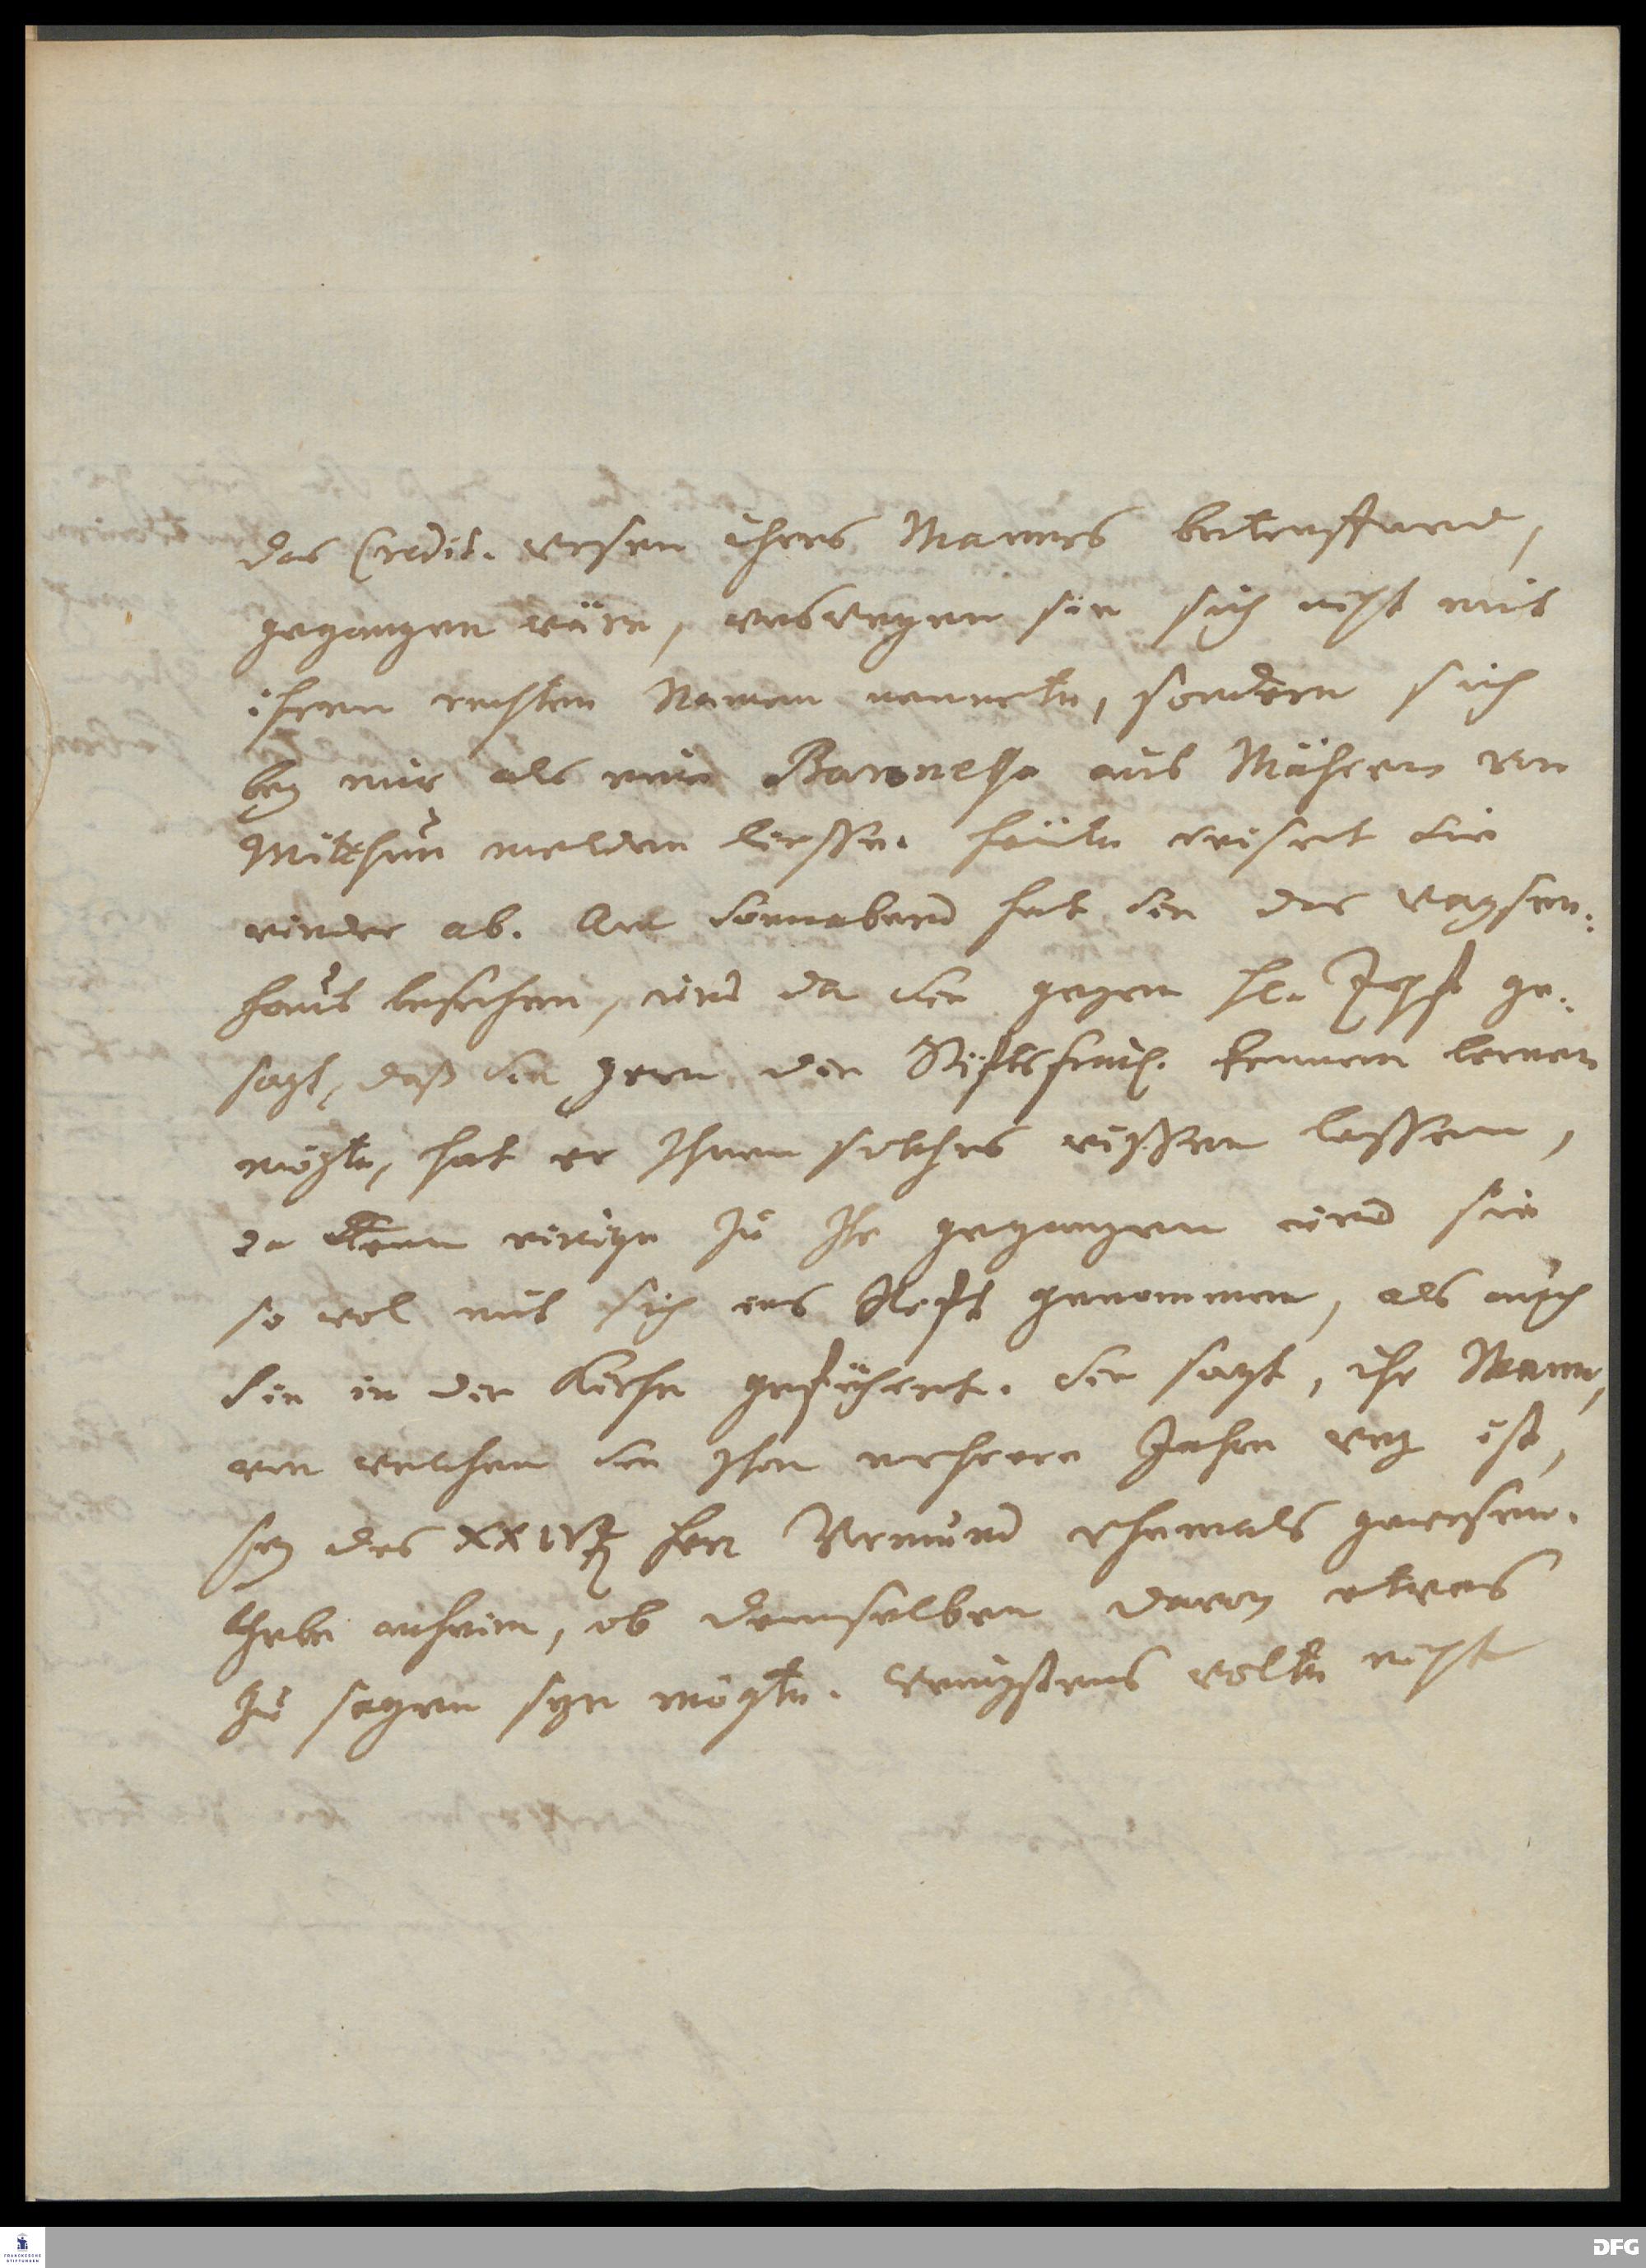 das Credit-wesen ihres Mannes betreffend,
gegangen wäre, weswegen sie sich nicht mit
ihren rechten Namen nennete, sondern sich
bey mir als eine Baronesse aus Mähren von
melden liesse. Heüte reiset Sie
wieder ab. Am Sonnabend hat Sie das Waysen-
haus besehen, und da Sie gegen H. ge-
sagt, daß Sie gern die Stiftsfräul. kennen lernen
mögte, hat er Ihnen solches wissen lassen,
da denn einige zu Ihr gegangen und sie
so wol mit sich ins Stift genommen, als auch
Sie in die Kirche geführet. Sie sagt, ihr Mann,
von welchem Sie schon mehrere Jahre weg ist,
sey des XXIV Herr Vormund ehemals gewesen.
Gebe anheim, ob demselben davon etwas
zu sagen seyn mögte. Wenigstens wolte nicht
FRANCKESCHE STIFTUNGEN
DFG